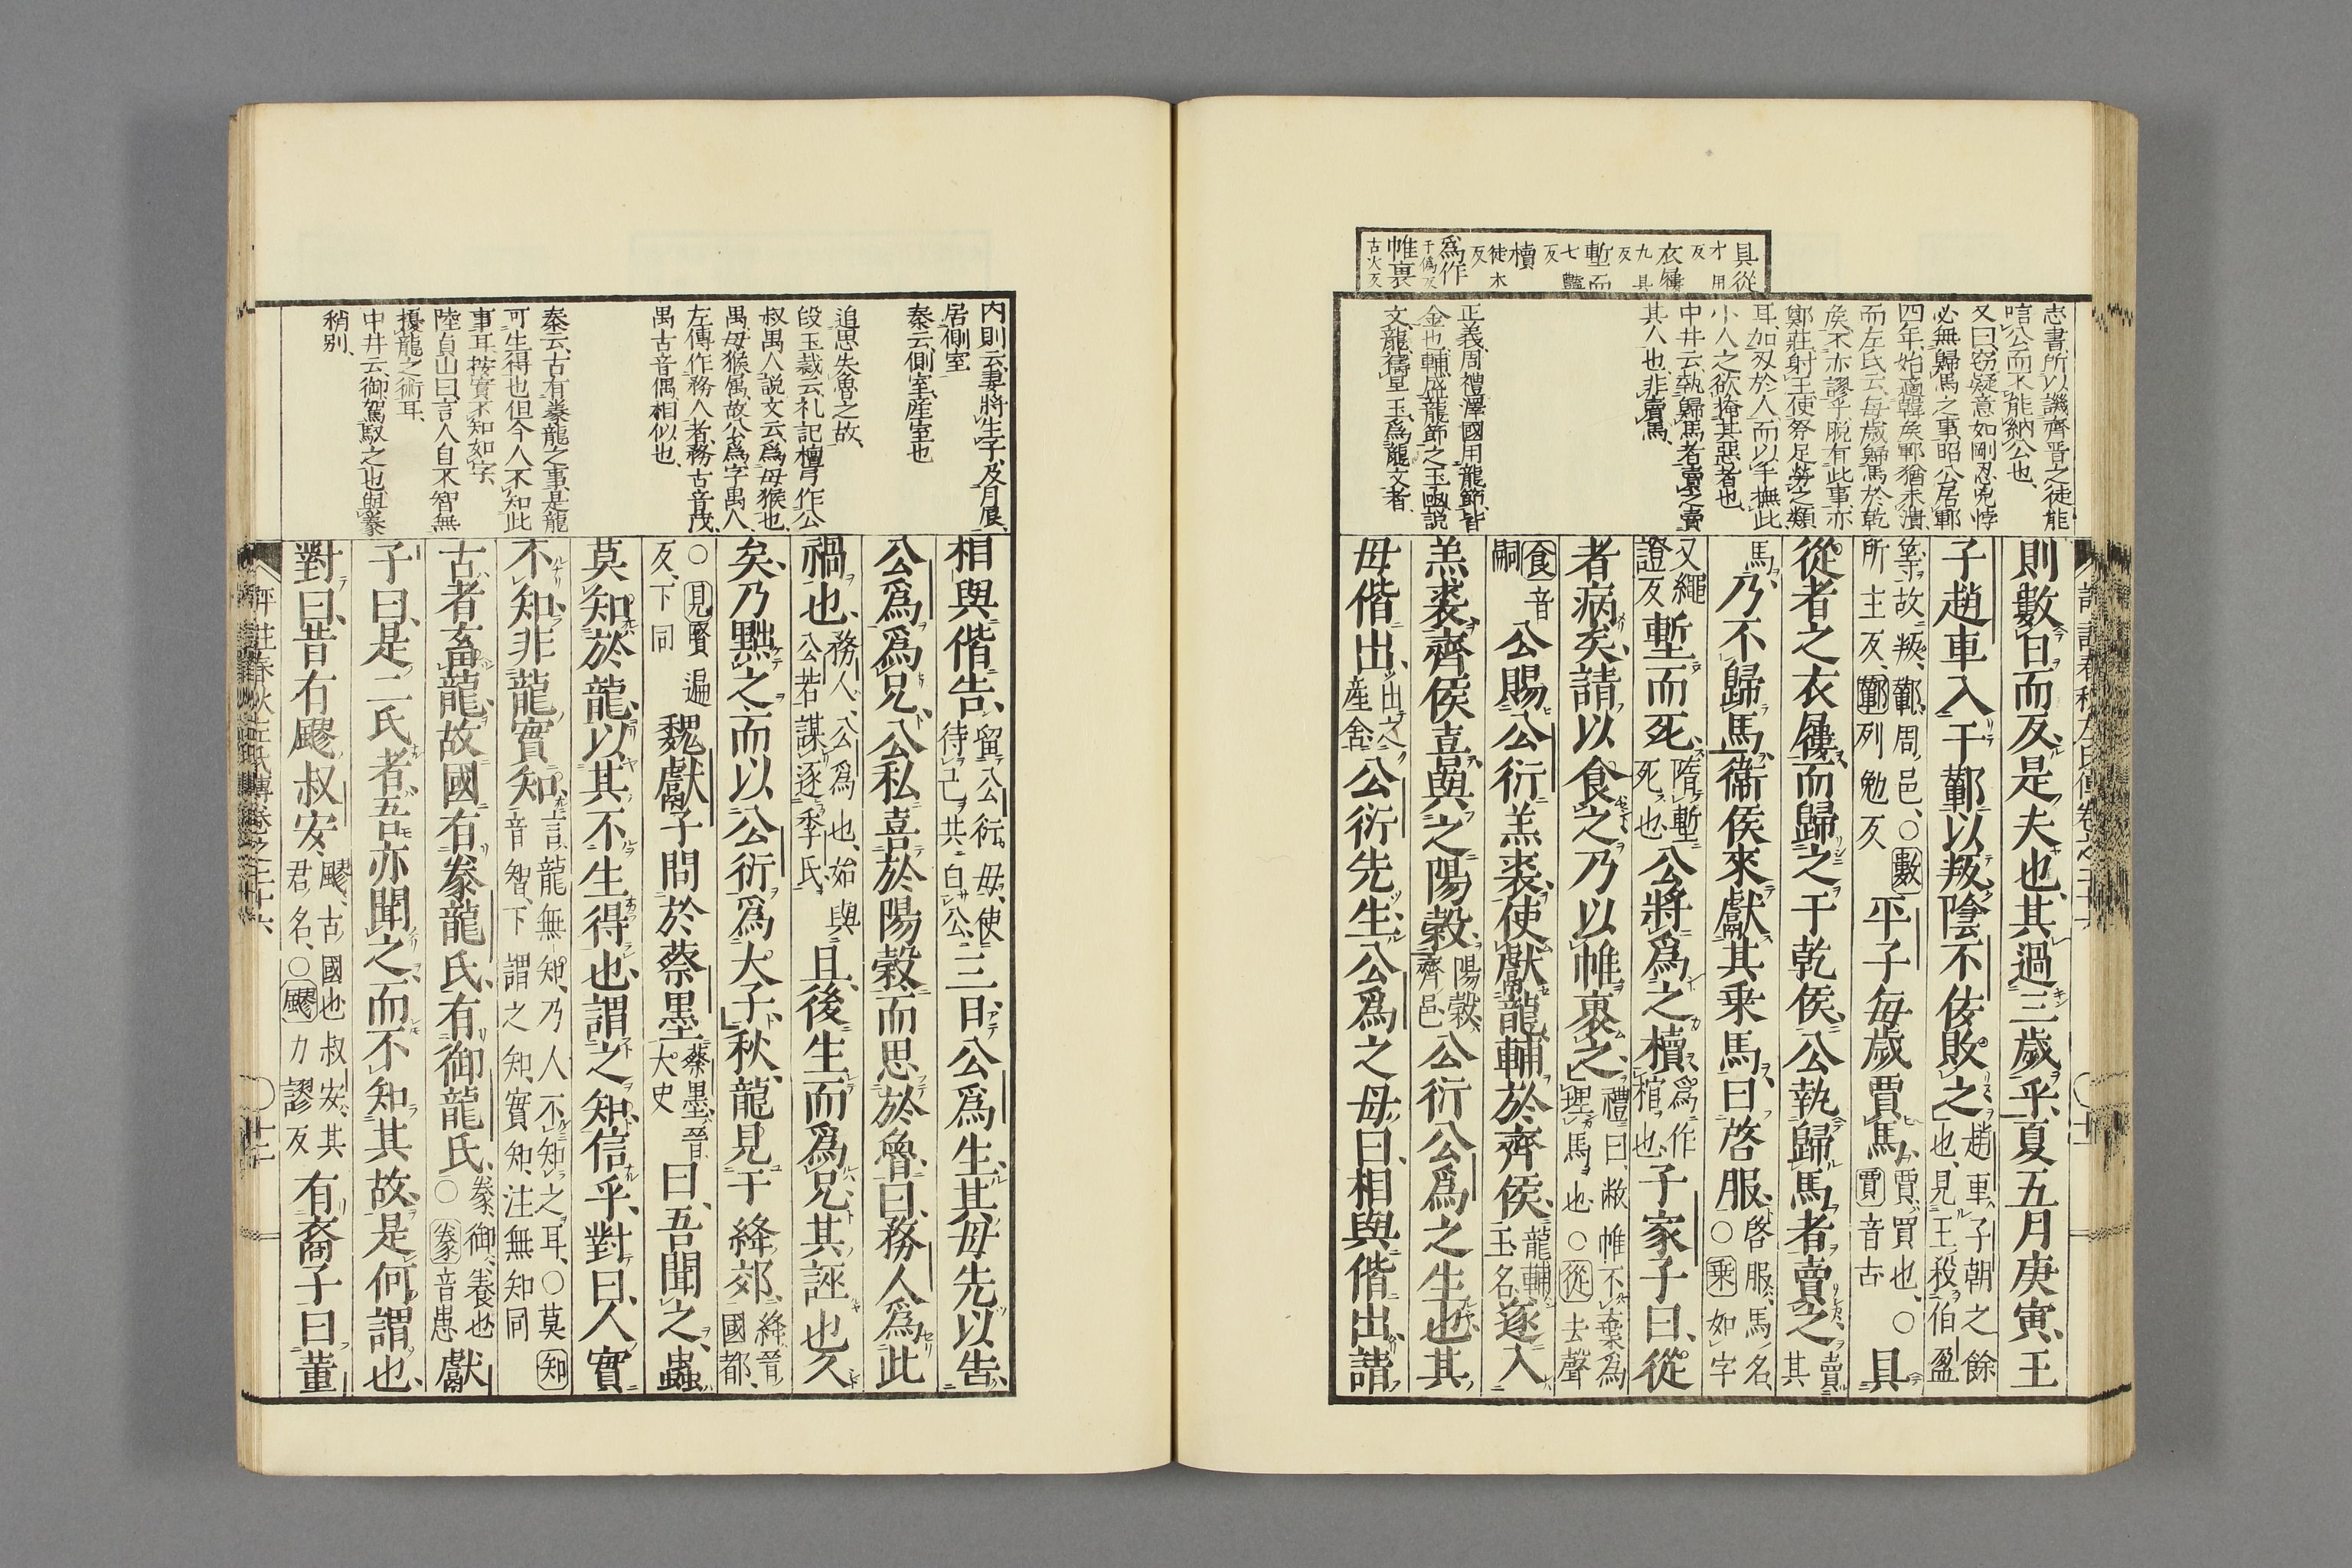 具從
才用
反
衣屨
九具
反
塹而
七豔
反
櫝
徒木
反
爲作
于僞反
帷裹
古火反
志書所以譏齊晋之徒能
唁公而不能納公也、
又曰、窃疑意如剛忍兇悖
必無歸馬之事昭公居鄆
四年、始適韓侯鄆猶未潰、
而左氏云、毎歲歸馬於乾
侯不亦謬乎、脱有此事、亦
鄭莊射王使祭足勞之類
耳、加刄於人、而以手撫此
小人之欲掩其惡者也、
中井云、執歸馬者賣之、賣
其人也、非賣馬、
正義、周禮澤國用龍節、皆
金也、輔盛龍節之玉函、說
文、龍禱旱玉、爲龍文者、
則數日而反是夫也、其過三歲乎、夏五月庚寅、王
子趙車入于鄻以叛陰不佞敗之、趙車子朝之餘
也、見王殺伯盈
等故叛、鄻周邑、○數
所主反、鄻列勉反
平子每歲賈馬賈買也、○
賈音古
具
從者之衣屨而歸之于乾侯、公執歸馬者賣之賣其
馬、乃不歸馬、衞侯來獻其乘馬曰啓服、啓服馬名
○乘如字
又繩
證反
塹而死隋塹
死也
公將爲之櫝爲作
棺也
子家子曰、從
者病矣、請以食之乃以帷裹之、禮曰、敝帷不棄爲
埋馬也、○從去聲
食音
嗣
公賜公衍羔裘使獻龍輔於齊侯、龍輔
玉名
遂入
羔裘、齊侯喜與之陽穀、陽穀
齊邑
公衍公爲之生也、其
母偕出、出之
產舍
公衍先生、公爲之母曰、相與偕出、請
評註春秋左氏傳卷之二十六
○十一
內則云、妻將生子、及月辰、
居側室
秦云側室、產室也
追思失魯之故、
段玉裁云、礼記檀弓作公
叔禺人、說文云、爲母猴也、
禺母猴属、故公爲字禺人、
左傳作務人者、務古音茂、
禺古音偶、相似也、
秦云、古有豢龍之事、是龍
可生得也但今人不知此
事耳、按實不知如字、
陸貞山曰、言人自不智無
擾龍之術耳、
中井云、御駕馭之也與豢
稍別、
相與偕告、留公衍母、使
待己共白公、
三日、公爲生、其母先以告
公爲爲兄、公私喜於陽穀而思於魯曰、務人爲此
禍也、務人、公爲也、始與
公若謀逐季氏、
且後生而爲兄、其誣也久
矣、乃黜之而以公衍爲大子、秋、龍見于絳郊、絳晉
國都、
○見賢遍
反、下同
魏獻子問於蔡墨蔡墨、晉
大史
曰、吾聞之、蟲
莫知於龍、以其不生得也、謂之知、信乎、對曰、人實
不知非龍實知、言龍無知、乃人不知之耳、○莫知
音智、下謂之知、實知、注無知同
古者畜龍、故國有豢龍氏、有御龍氏、豢、御、養也
○豢音患
獻
子曰、是二氏者、吾亦聞之、而不知其故、是何謂也、
對曰、昔有飂叔安、飂、古國也叔安、其
君名、○飂力謬反
有裔子曰董
評註春秋左氏傳卷之二十六
○十二